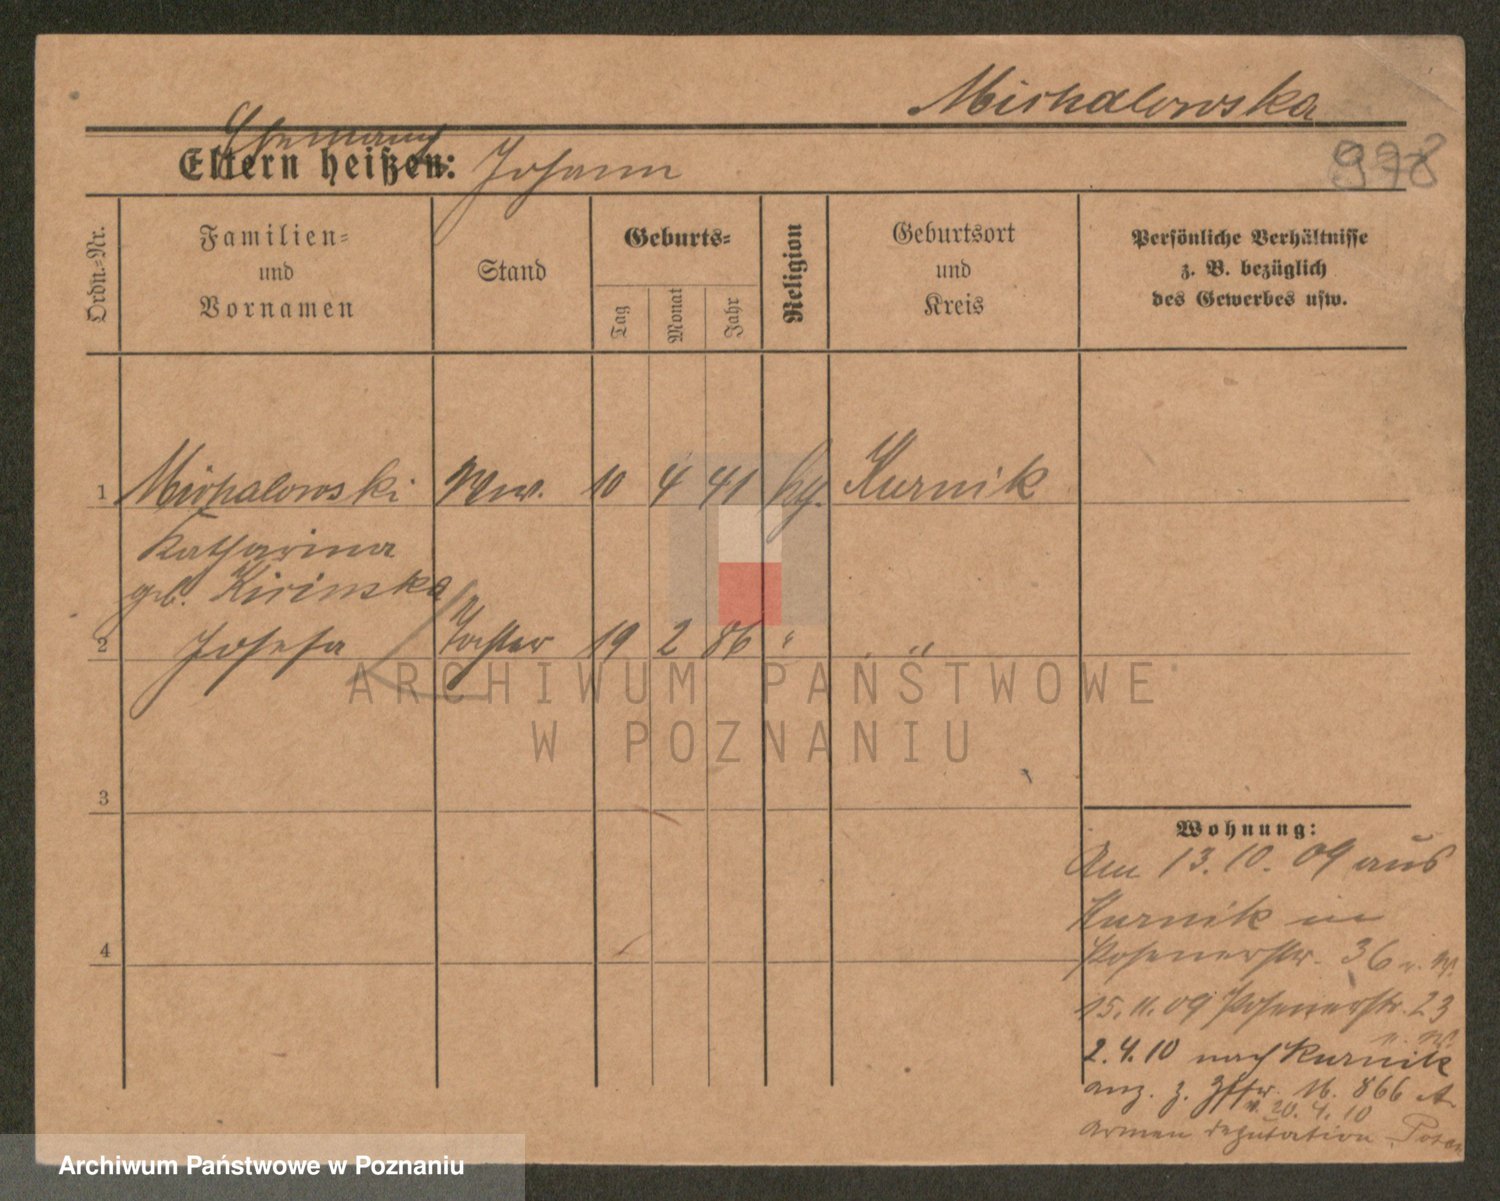 Michalowska
Ehemann
Eltern heißen: Johann
998
Ordn.=Nr.
Familien=
und
Vornamen
Stand
Geburts=
Tag
Monat
Jahr
Religion
Geburtsort
und
Kreis
Persönliche Verhältnisse
z. B. bezüglich
des Gewerbes usw.
1 Michalowski Ww. 10 4 41 kth. Kurnik
Katharina
geb. Kirinska
2 Josefa Tochter 19 2 86 " "
3
4
Wohnung:
Am 13.10.09 aus
Kurnik in
Posenerstr. 36
15.11.09 Posenerstr. 23
2.4.10 nach Kurnik
anz. z. 16. 866 A
v. 20.4.10
Armen deputation Posen
ARCHIWUM PAŃSTWOWE
W POZNANIU
Archiwum Państwowe w Poznaniu